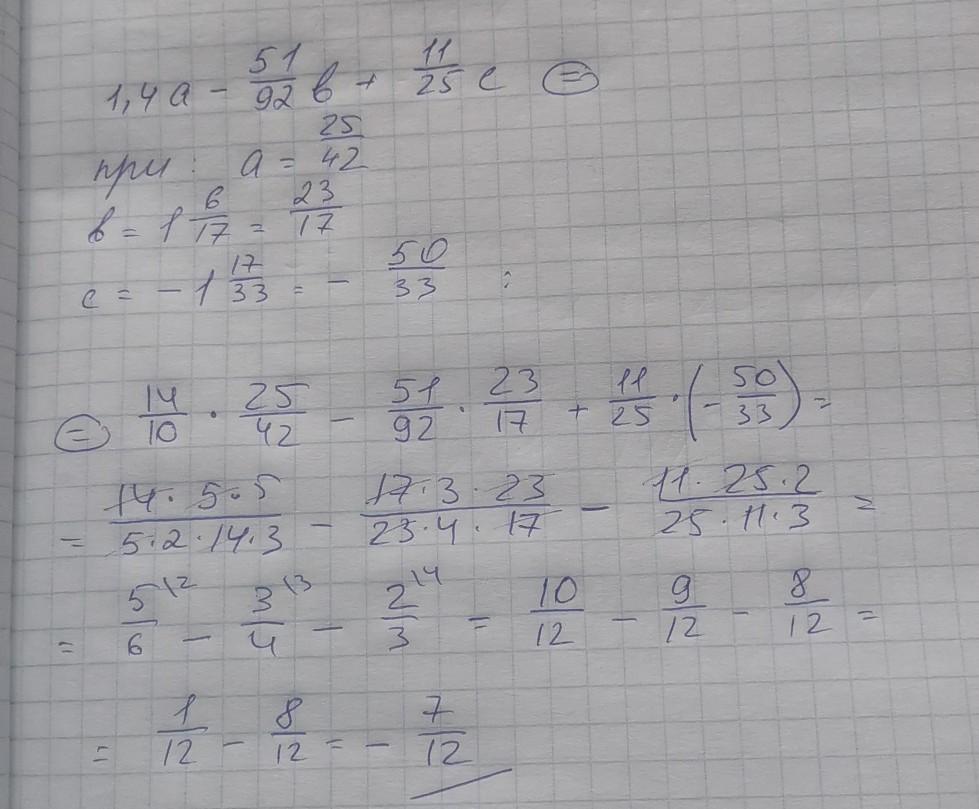 1,4a - 51/92 в + 11/25 c (=)
при: a = 25/42
в = 1 6/17 = 23/17
c = - 1 17/33 = - 50/33 :
(=) 14/10 · 25/42 - 51/92 · 23/17 + 11/25 · (- 50/33) =
= 14 · 5 · 5/5 · 2 · 14 · 3 - 17 · 3 · 23/23 · 4 · 17 - 11 · 25 · 2/25 · 11 · 3 =
= 5/6 \2 - 3/4 \3 - 2/3 \4 = 10/12 - 9/12 - 8/12 =
= 1/12 - 8/12 = - 7/12